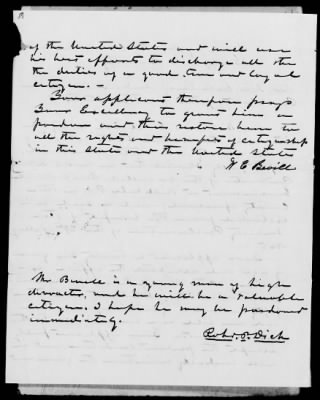 of the United States and will use
his best efforts to discharge all the
the duties of a good, true and loyal
citizen. —
Your applicant therefore prays
Your Excellency to grant him a
pardon and thus restore him to
all the rights and benefits of citizenship
in this State and the United States
W E Bevill
Mr Bevill is a young man of high
character, and he will be a valuable
citizen. I hope he may be pardoned
immediately.
Robt. P. Dick